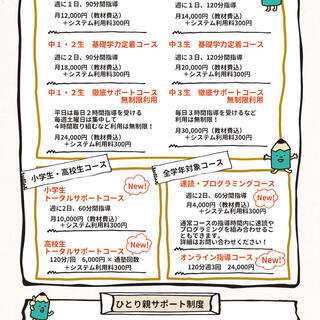 週に１日、90分間指導
月12,000円（教材費込）
＋システム利用料300円
週に１日、120分間指導
月14,000円（教材費込）
＋システム利用料300円
中１・２生 基礎学力定着コース
週に２日、90分間指導
月18,000円（教材費込）
＋システム利用料300円
中３生 基礎学力定着コース
週に３日、120分間指導
月20,000円（教材費込）
＋システム利用料300円
中１・２生 徹底サポートコース
無制限利用
平日は毎日２時間指導を受ける
毎週土曜日は集中して
４時間取り組むなど利用は無制限！
月24,000円（教材費込）
＋システム利用料300円
中３生 徹底サポートコース
無制限利用
毎日３時間指導を受けるなど
利用は無制限！
月30,000円（教材費込）
＋システム利用料300円
小学生・高校生コース
小学生
トータルサポートコース
New!
週に2日、60分間指導
月10,000円（教材費込）
＋システム利用料300円
高校生
トータルサポートコース
New!
120分/回 6,000円 × 通塾回数
＋システム利用料300円
全学年対象コース
速読・プログラミングコース
週に2日、60分間指導
New!
月4,000円（教材費込）
＋システム利用料300円
通常コースの指導時間内に速読や
プログラミングを組み合わせるこ
ともできます。
詳細はお問い合わせください！
New!
オンライン指導コース
120分週3回 24,000円
ひとり親サポート制度